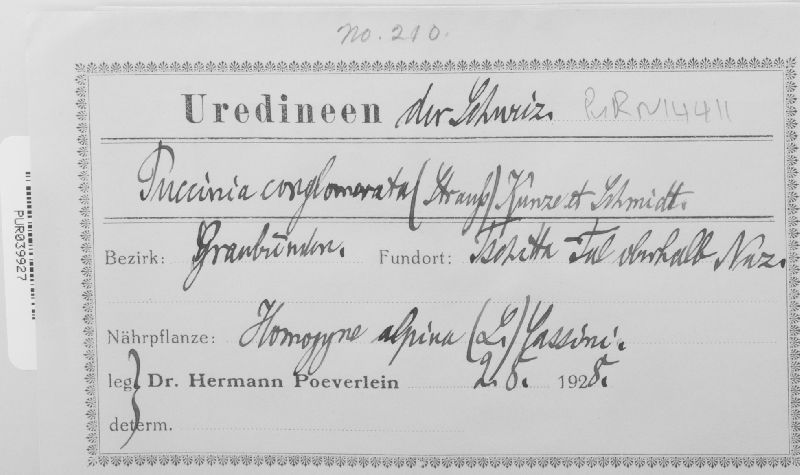 No. 210.
Uredineen der Schweiz. PUR N14411
Puccinia conglomerata (Strauß) Kunze et Schmidt.
Bezirk: Graubünden. Fundort: Tschitta Tal oberhalb Naz.
Nährpflanze: Homogyne alpina (L.) Cassini.
leg. Dr. Hermann Poeverlein 2.8. 1928.
determ.
PUR039927